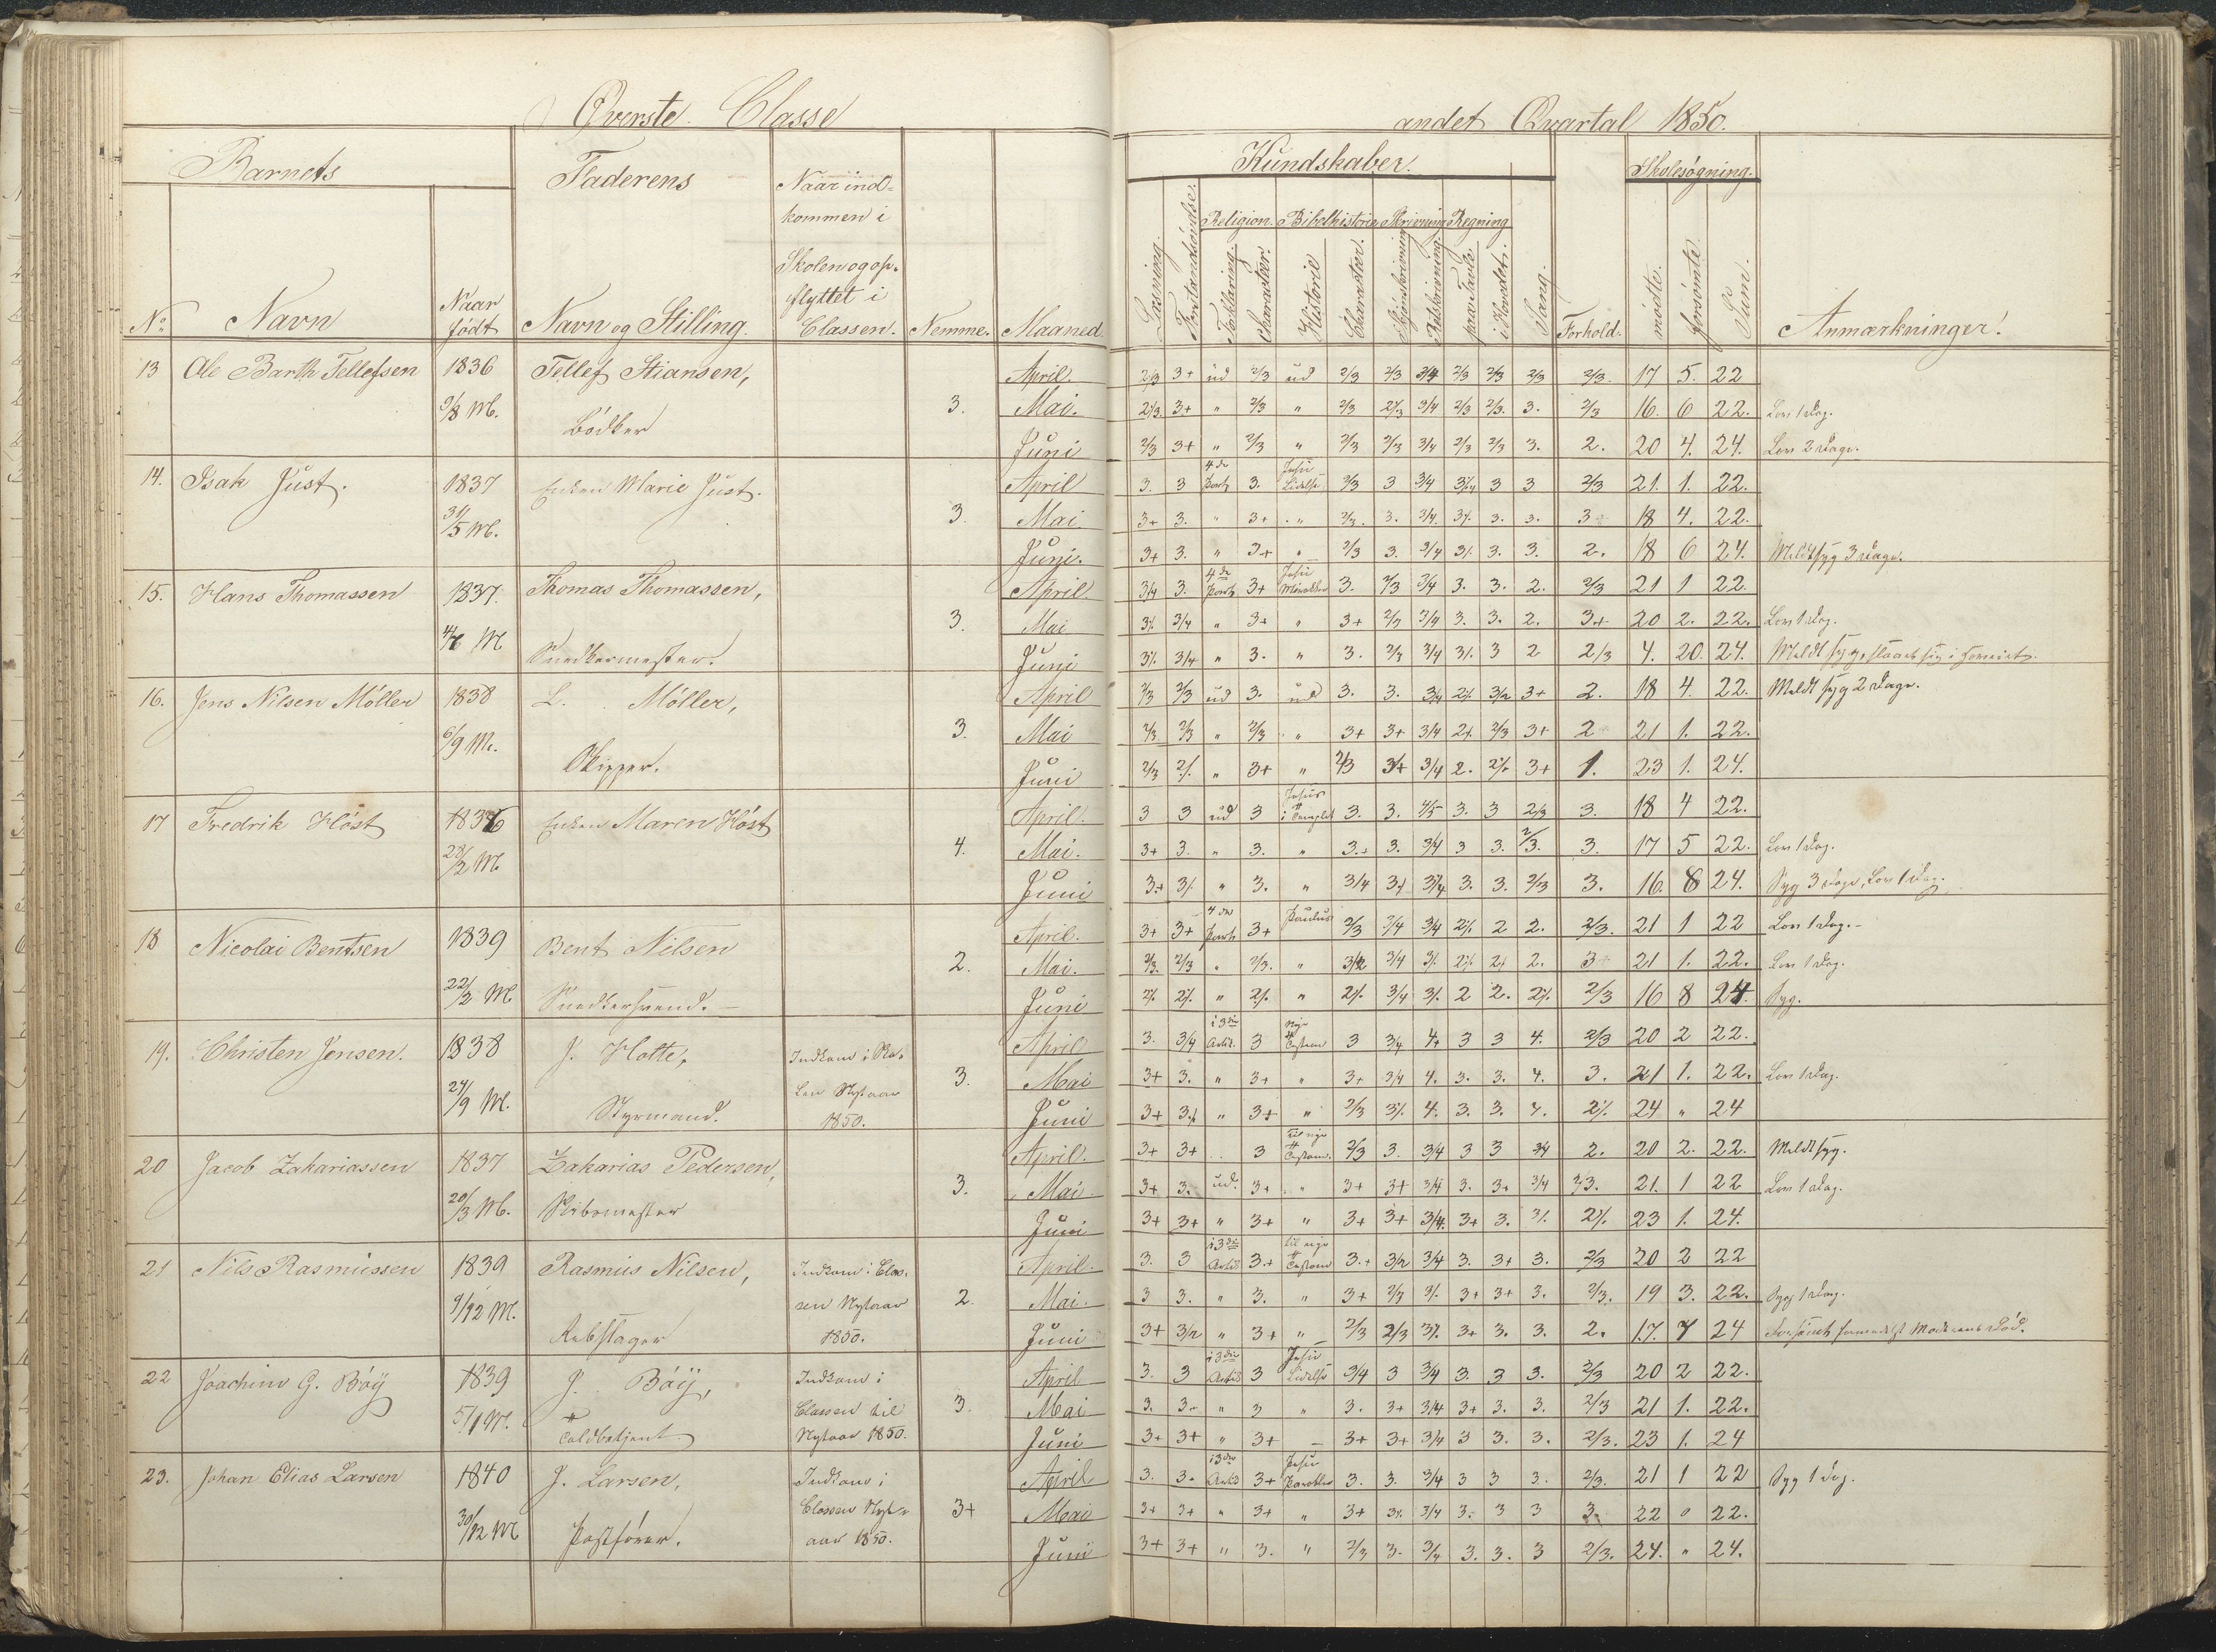 Øverste Classe
andet Qvartal 1850.
Barnets
Faderens
Naar ind-
kommen i
Skolen og op-
flyttet i
Classen.
No
Navn
Naar
født
Navn og Stilling.
Nemme.
Maaned.
Kundskaber.
Skolesøgning.
Religion. Bibelhistorie Skrivning Regning
Læsning.
Forstandsøvelse.
Forklaring.
Charakter.
Historie
Charakter.
Skjönskrivning
Retskrivning.
paa Tavle
i Hovedet.
Sang.
Forhold.
mødte.
forsømte
Sum.
Anmærkninger.
13 Ole Barth Tellefsen 1836 Tellef Stiansen, April. 2/3 3+ ud 2/3 ud 2/3 2/3 3/4 2/3 2/3 2/3 2/3. 17 5. 22
9/8 M. Bødker 3. Mai. 2/3. 3+ " 2/3 " 2/3 2/3 3/4 2/3 2/3. 3. 2/3 16. 6 22. Lov 1 Dag.
Juni 2/3 3+ " 2/3 " 2/3 2/3 3/4 2/3 2/3 3. 2. 20 4. 24. Lov 2 Dage.
14. Isak Just. 1837 Enken Marie Just. April 3. 3 4de Part 3. Jesu Lidelse 2/3 3 3/4 3 3 2/3 21. 1. 22.
31/5 M. 3. Mai 3+ 3. " 3+ " 2/3. 3. 3/4. 3. 3. 3 18 4. 22.
Juni. 3+ 3. " 3+ " 2/3 3. 3/4 3. 3. 2. 18 6 24. Meldt syg 3 Dage.
15. Hans Thomassen 1837. Thomas Thomassen, April 3/4 3. 4de Part 3+ Jesu 3. 2/3 3/4 3. 3. 2. 2/3 21 1 22.
M Snedkermester. 3. Mai 3/4 " 3+ " 3+ 2/3 3/4 3. 3. 2. 3+ 20 2. 22. Lov 1 Dag.
Juni 3/4 " 3. " 3. 2/3 3/4 3 2 2/3 4. 20. 24. Meldt syg
16. Jens Nilsen Møller 1838 L. Møller, April 2/3 2/3 ud 3. ud 3. 3. 3/4 3+ 2. 18 4. 22. Meldt syg 2 Dage.
6/9 M. Skipper. 3. Mai 2/3 2/3 " 2/3 " 3+ 3+ 3/4 2/3 3+ 2 21 1. 22.
Juni 2/3 " 3+ " 2/3 3+ 3/4 2. 3+ 1. 23 1. 24.
17 Fredrik Høst 1836 Enken Maren Høst April. 3 3 ud 3 Jesus i Templet 3. 3. 4/5 3. 3 2/3 3. 18 4 22.
28/2 M 4. Mai. 3+ 3. " 3. " 3.+ 3. 3/4 3 3. 2/3. 3. 17 5 22. Lov 1 Dag.
Juni 3+ " 3. " 3/4 3. 3. 2/3 3. 16. 8 24. Syg 3 Dage, Lov 1 Dag.
18 Nicolai Bentsen 1839 Bent Nilsen April. 3+ 3+ 4de Part 3+ Paulus 2/3 3/4 3/4 2 2. 2/3. 21 1 22 Lov 1 Dag.
22/2 M Snedkersvend. 2. Mai. 2/3. 2/3 " 2/3. " 3/4 2. 3 21 1. 22. Lov 1 Dag.
Juni " " 3/4 2 2. 2/3 16 8 24. Syg.
19. Christen Jensen. 1838 J. Hotte, Indkom i Sko- April 3. 3/4 i 3die Artik. 3 nye Testam 3 3/4 4+ 3 3 4. 2/3 20 2 22.
24/9 M. Styrmand. len Nytaar 3. Mai 3+ 3. " 3+ " 3+ 3/4 4. 3. 3. 4. 3. 21 1. 22. Lov 1 Dag.
1850. Juni 3+ " 3+ " 2/3 4. 3. 3. 4. 24 " 24
20 Jacob Zakariassen 1837 Zakarias Pedersen, April. 3+ 3+ 3 til nye Testam. 2/3 3. 3/4 3 3 3/4 2. 20 2. 22. Meldt syg.
20/3 M. Skibsmester 3. Mai 3+ 3. ud. 3+ " 3+ 3+ 3/4 3. 3+ 3/4 2/3. 21. 1 22 Lov 1 Dag.
Juni 3+ 3+ " 3+ " 3+ 3+ 3/4. 3+ 3. 23 1. 24.
21 Nils Rasmussen 1839 Rasmus Nilsen, Indkom i Clas- April. 3. 3 i 3die Artik 3.+ til nye Testam 3.+ 3/4 3. 3+ 3. 2/3 20 2 22
9/12 M. Rebslager sen Nytaar 2. Mai. 3 3. " 3. " 3+ 2/3 3+ 3+ 3. 2/3. 19 3. 22. Syg 1 Dag.
1850. Juni 3+ " 3+ " 2/3 2/3 3+ 3. 3. 2. 17. 7 24 Forsømt formedelst Moderens Død.
22 Joachim G. Böy 1839 J. Böy, Indkom i April 3. 3 i 3die Artik 3 Jesu Lidelse 3/4 3 3/4 3. 3 3. 2/3 20 2 22.
5/1 M. Toldbetjent Classen til 3. Mai 3. 3+ " 3 " 3. 3+ 3/4 3+ 3. 3. 2/3 21 1. 22.
Nytaar 1850. Juni 3+ 3+ " 3+ 3+ 3+ 3/4 3 3. 3. 2/3. 23 1. 24
23. Johan Elias Larsen 1840 J. Larsen, Indkom i April 3. 3. i 3die Artik 3+ Jesu Parabler 3. 3. 3/4 3 3 3. 2/3. 21 1 22 Syg 1 Dag.
30/12 M Postfører. Classen Nyt- 3+ Mai 3+ 3+ " 3+ " 3+ 3/4 3. 3 3 3. 22 0 22.
aar 1850. Juni 3+ 3+ " 3. " 2/3 3. 3/4 3. 3. 3 2/3. 24. " 24.